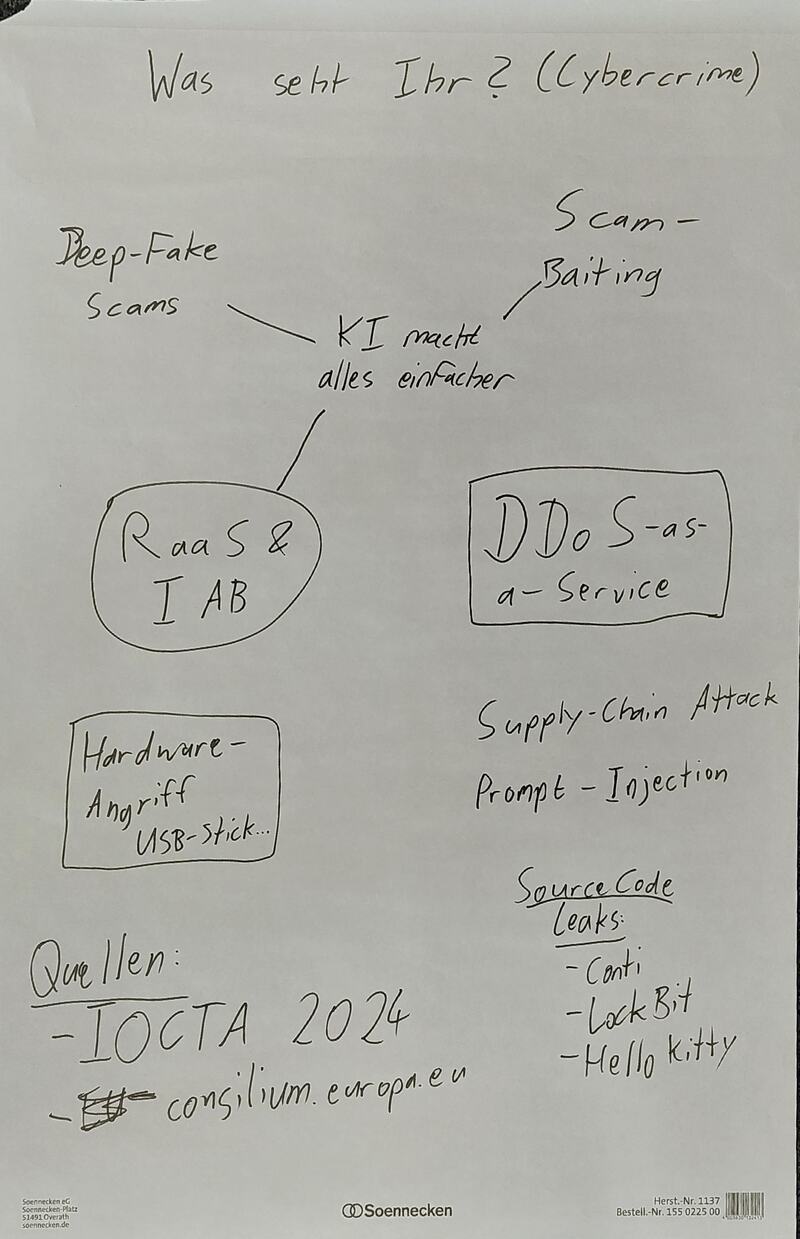 Was seht Ihr? (Cybercrime)
Deep-Fake
Scams
Scam-
Baiting
KI macht
alles einfacher
RaaS &
IAB
DDoS-as-
a-Service
Hardware-
Angriff
USB-Stick...
Supply-Chain Attack
Prompt-Injection
SourceCode
Leaks:
- Conti
- LockBit
- Hello Kitty
Quellen:
- IOCTA 2024
- consilium.europa.eu
Soennecken eG
Soennecken-Platz
51491 Overath
soennecken.de
Soennecken
Herst.-Nr. 1137
Bestell.-Nr. 155 0225 00